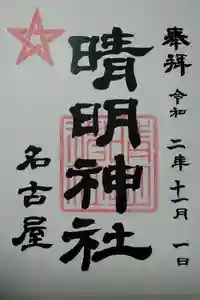 奉拝
令和二年十一月一日
晴明神社
名古屋